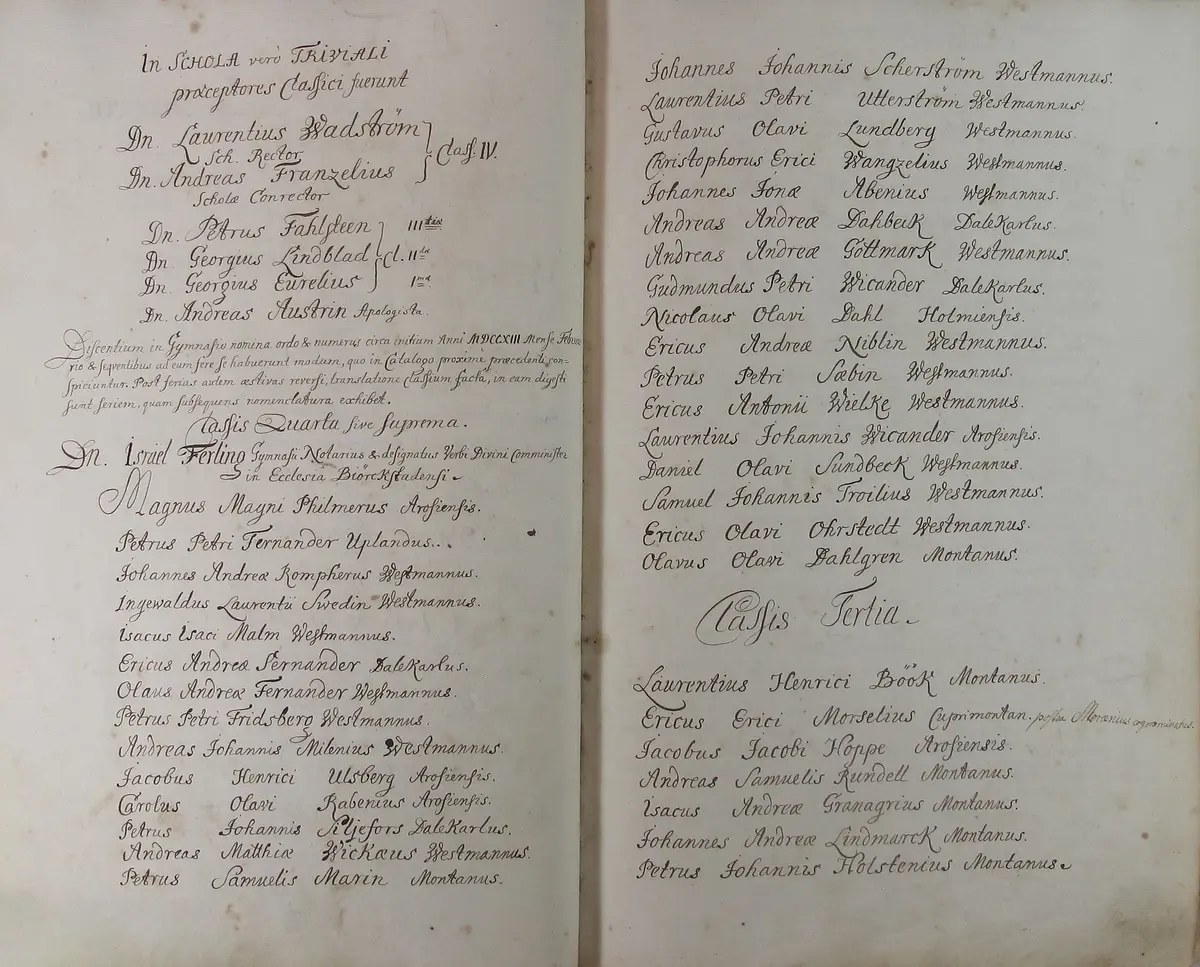 In SCHOLA verò TRIVIALI
præceptores Classici fuerunt
Dn. Laurentius Wadström
Sch. Rector
Class. IV.
Dn. Andreas Franzelius
Scholæ Conrector
Dn. Petrus Fahlsteen IIItiæ
Dn. Georgius Lindblad Cl. IIdæ
Dn. Georgius Eurelius Imæ
Dn. Andreas Austrin Apologista.
Discentium in Gymnasiu nomina, ordo & numerus circa initium Anni MDCCXIII Mense Februa-
rio & seqventibus ad eum fere se habuerunt modum, quo in Catalogo proximè præcedenti, con-
spiciuntur. Post ferias autem æstivas reversi, translatione classium facta, in eam digesti
sunt seriem, quam subseqvens nomenclatura exhibet.
Classis Quarta sive suprema.
Dn. Israël Ferling Gymnasii Notarius & designatus Verbi Divini Comminister
in Ecclesia Biörckstadensi.
Magnus Magni Philmerus Arosiensis.
Petrus Petri Fernander Uplandus.
Johannes Andreæ Rompherus Westmannus.
Ingewaldus Laurentii Swedin Westmannus.
Isacus Isaci Malm Westmannus.
Ericus Andreæ Fernander DaleKarlus.
Olaus Andreæ Fernander Westmannus.
Petrus Petri Fridsberg Westmannus.
Andreas Johannis Milenius Westmannus.
Jacobus Henrici Ulsberg Arosiensis.
Carolus Olavi Rabenius Arosiensis.
Petrus Johannis Siljefors DaleKarlus.
Andreas Matthiæ Wickæus Westmannus.
Petrus Samuelis Marin Montanus.
Johannes Johannis Scherström Westmannus.
Laurentius Petri Utterström Westmannus.
Gustavus Olavi Lundberg Westmannus.
Christophorus Erici Wangzelius Westmannus.
Johannes Jonæ Abenius Westmannus.
Andreas Andreæ Dahbeck DaleKarlus.
Andreas Andreæ Göttmark Westmannus.
Gudmundus Petri Wicander DaleKarlus.
Nicolaus Olavi Dahl Holmiensis.
Ericus Andreæ Niblin Westmannus.
Petrus Petri Sæbin Westmannus.
Ericus Antonii Wielke Westmannus.
Laurentius Johannis Wicander Arosiensis.
Daniel Olavi Sundbeck Westmannus.
Samuel Johannis Troilius Westmannus.
Ericus Olavi Ohrstedt Westmannus.
Olavus Olavi Dahlgren Montanus.
Classis Tertia.
Laurentius Henrici Böök Montanus.
Ericus Erici Morselius Cuprimontan. postea Moræenius cognominatus.
Jacobus Jacobi Hoppe Arosiensis.
Andreas Samuelis Rundell Montanus.
Isacus Andreæ Granagrius Montanus.
Johannes Andreæ Lindmarck Montanus.
Petrus Johannis Holstenius Montanus.